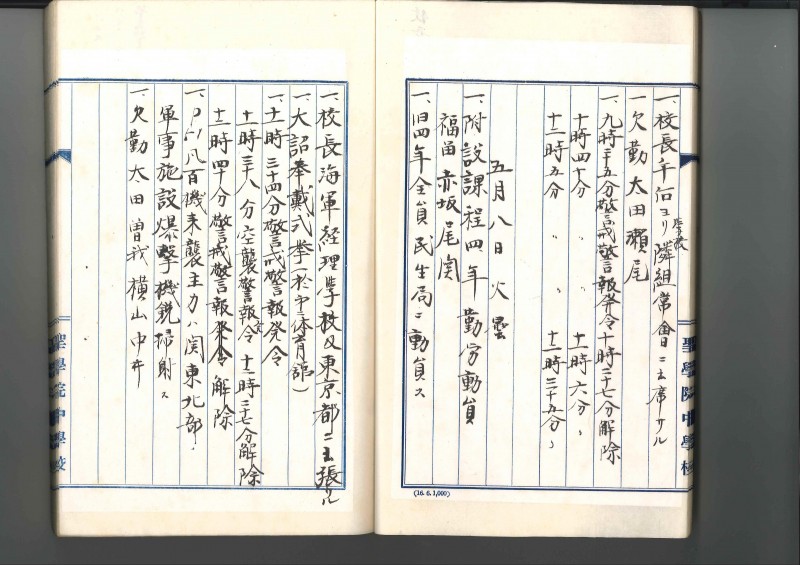 一、校長午后ヨリ隣組常會ニ出席サル
学校
一、欠勤太田瀬尾
一、九時三十五分警戒警報発令十時二十七分解除
十時四十分〃〃十一時六分〃
十二時五分〃〃十二時三十五分〃
五月八日火曇
一、附設課程四年勤労動員
福畄赤坂尾関
一、旧四年全員民生局ニ動員ス
(16. 6. 1,000)
聖學院中學校
一、校長海軍経理学校及東京都ニ出張サル
一、大詔奉戴式挙(於第二体育館)
一、十一時三十四分警戒警報発令
十一時三八分空襲警報発令十二時二七分解除
十二時四十分警戒警報発令解除
一、P51八百機来襲主力ハ関東北部
軍事施設爆撃機銃掃射ス
一、欠勤太田曽我横山中井
聖學院中學校